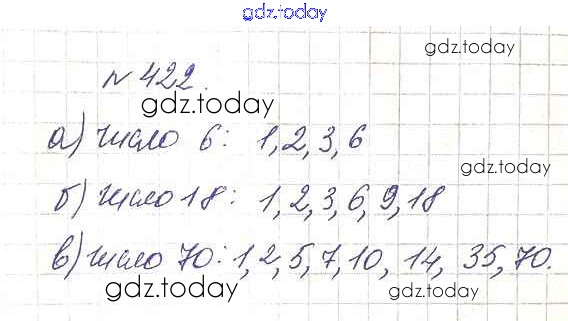 gdz.today
gdz.today
№ 422.
gdz.today
а) число 6: 1, 2, 3, 6
gdz.today
б) число 18: 1, 2, 3, 6, 9, 18
в) число 70: 1, 2, 5, 7, 10, 14, 35, 70.
gdz.today
gdz.today